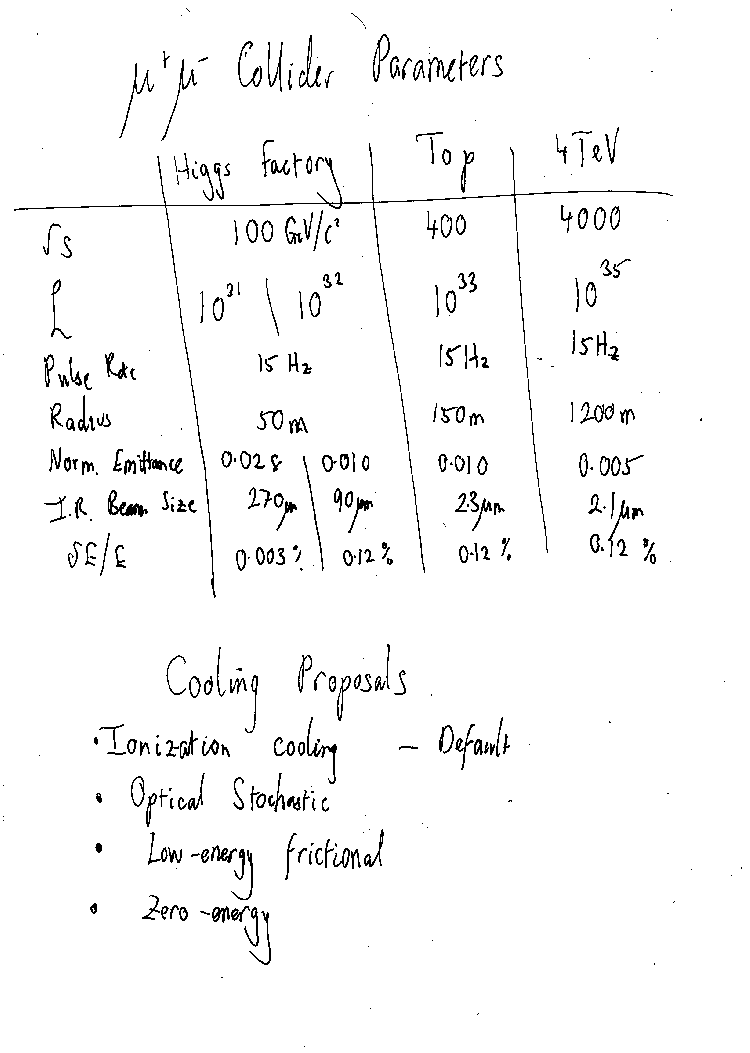 μ⁺μ⁻ Collider Parameters
Higgs Factory Top 4TeV
√s 100 GeV/c² 400 4000
L 10³¹ 10³² 10³³ 10³⁵
Pulse Rate 15 Hz 15Hz 15Hz
Radius 50m 150m 1200m
Norm. Emittance 0.028 0.010 0.010 0.005
I.R. Beam Size 270μm 90μm 23μm 2.1μm
δE/E 0.003% 0.12% 0.12% 0.12%
Cooling Proposals
• Ionization cooling – Default
• Optical Stochastic
• Low-energy frictional
• Zero-energy